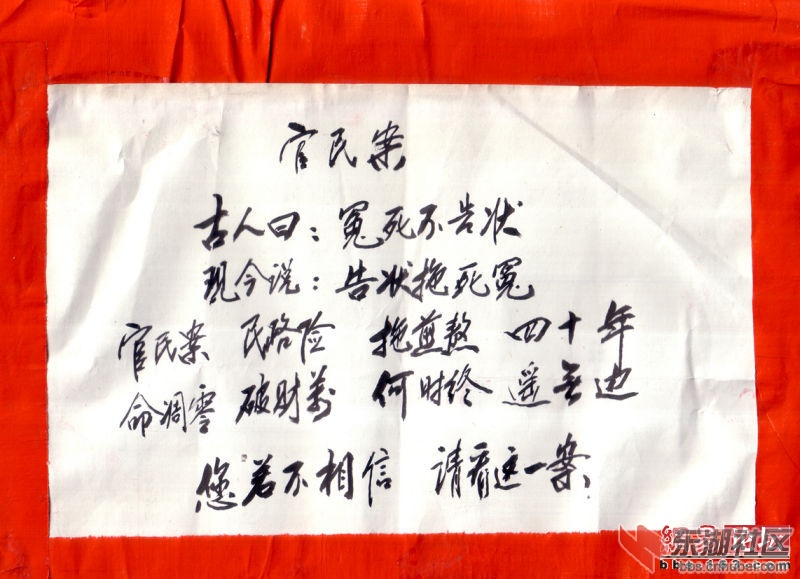 官民案
古人曰：冤死不告状
现今说：告状拖死冤
官民案 民路险 拖煎熬 四十年
命凋零 破财万 何时终 遥无边
您若不相信 请看这一案
东湖社区
bbs.cnhuber.com